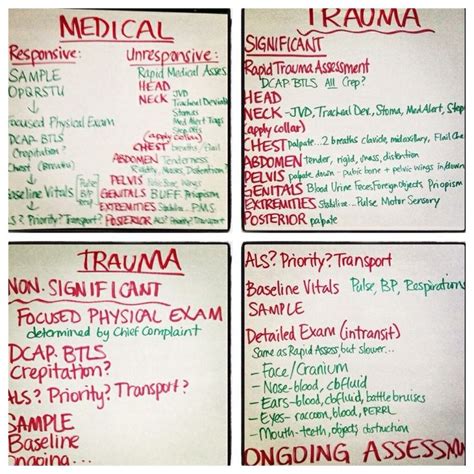 MEDICAL
Responsive:
SAMPLE
OPQRSTU
Focused Physical Exam
DCAP-BTLS
Crepitation?
Chest
Baseline Vitals [Pulse BP
ALS? Priority? Transport?
Unresponsive:
Rapid Medical Asses
HEAD
NECK - JVD
Tracheal Deviation
Stoma
Med Alert Tags
Step offs
(apply collar)
CHEST breaths/flail
ABDOMEN Tenderness
Rigidity, Masses, Distention
PELVIS
GENITALS BUFF Priopism
EXTREMITIES Stabilize... PMS
POSTERIOR ALS? Priority? Transport?
TRAUMA
SIGNIFICANT
Rapid Trauma Assessment
DCAP-BTLS All Crep?
HEAD
NECK - JVD, Tracheal Dev., Stoma, Med Alert, Step
(apply collar)
CHEST palpate... 2 breaths clavicle, midaxillary, Flail Ch
ABDOMEN tender, rigid, mass, distention
PELVIS palpate down - pubic bone + pelvic wings in/down
GENITALS Blood Urine Feces, Foreign Objects Priopism
EXTREMITIES Stabilize... Pulse Motor Sensory
POSTERIOR palpate
TRAUMA
NON-SIGNIFICANT
FOCUSED PHYSICAL EXAM
determined by Chief Complaint
DCAP-BTLS
Crepitation?
ALS? Priority? Transport?
SAMPLE
Baseline
Ongoing...
ALS? Priority? Transport
Baseline Vitals Pulse, BP, Respirations
SAMPLE
Detailed Exam (intransit)
Same as Rapid Assess but slower...
- Face/Cranium
- Nose-blood, cbfluid
- Ears-blood, cbfluid, battle bruises
- Eyes- raccoon, blood, PERRL
- Mouth-teeth, objects, obstruction
ONGOING ASSESSM